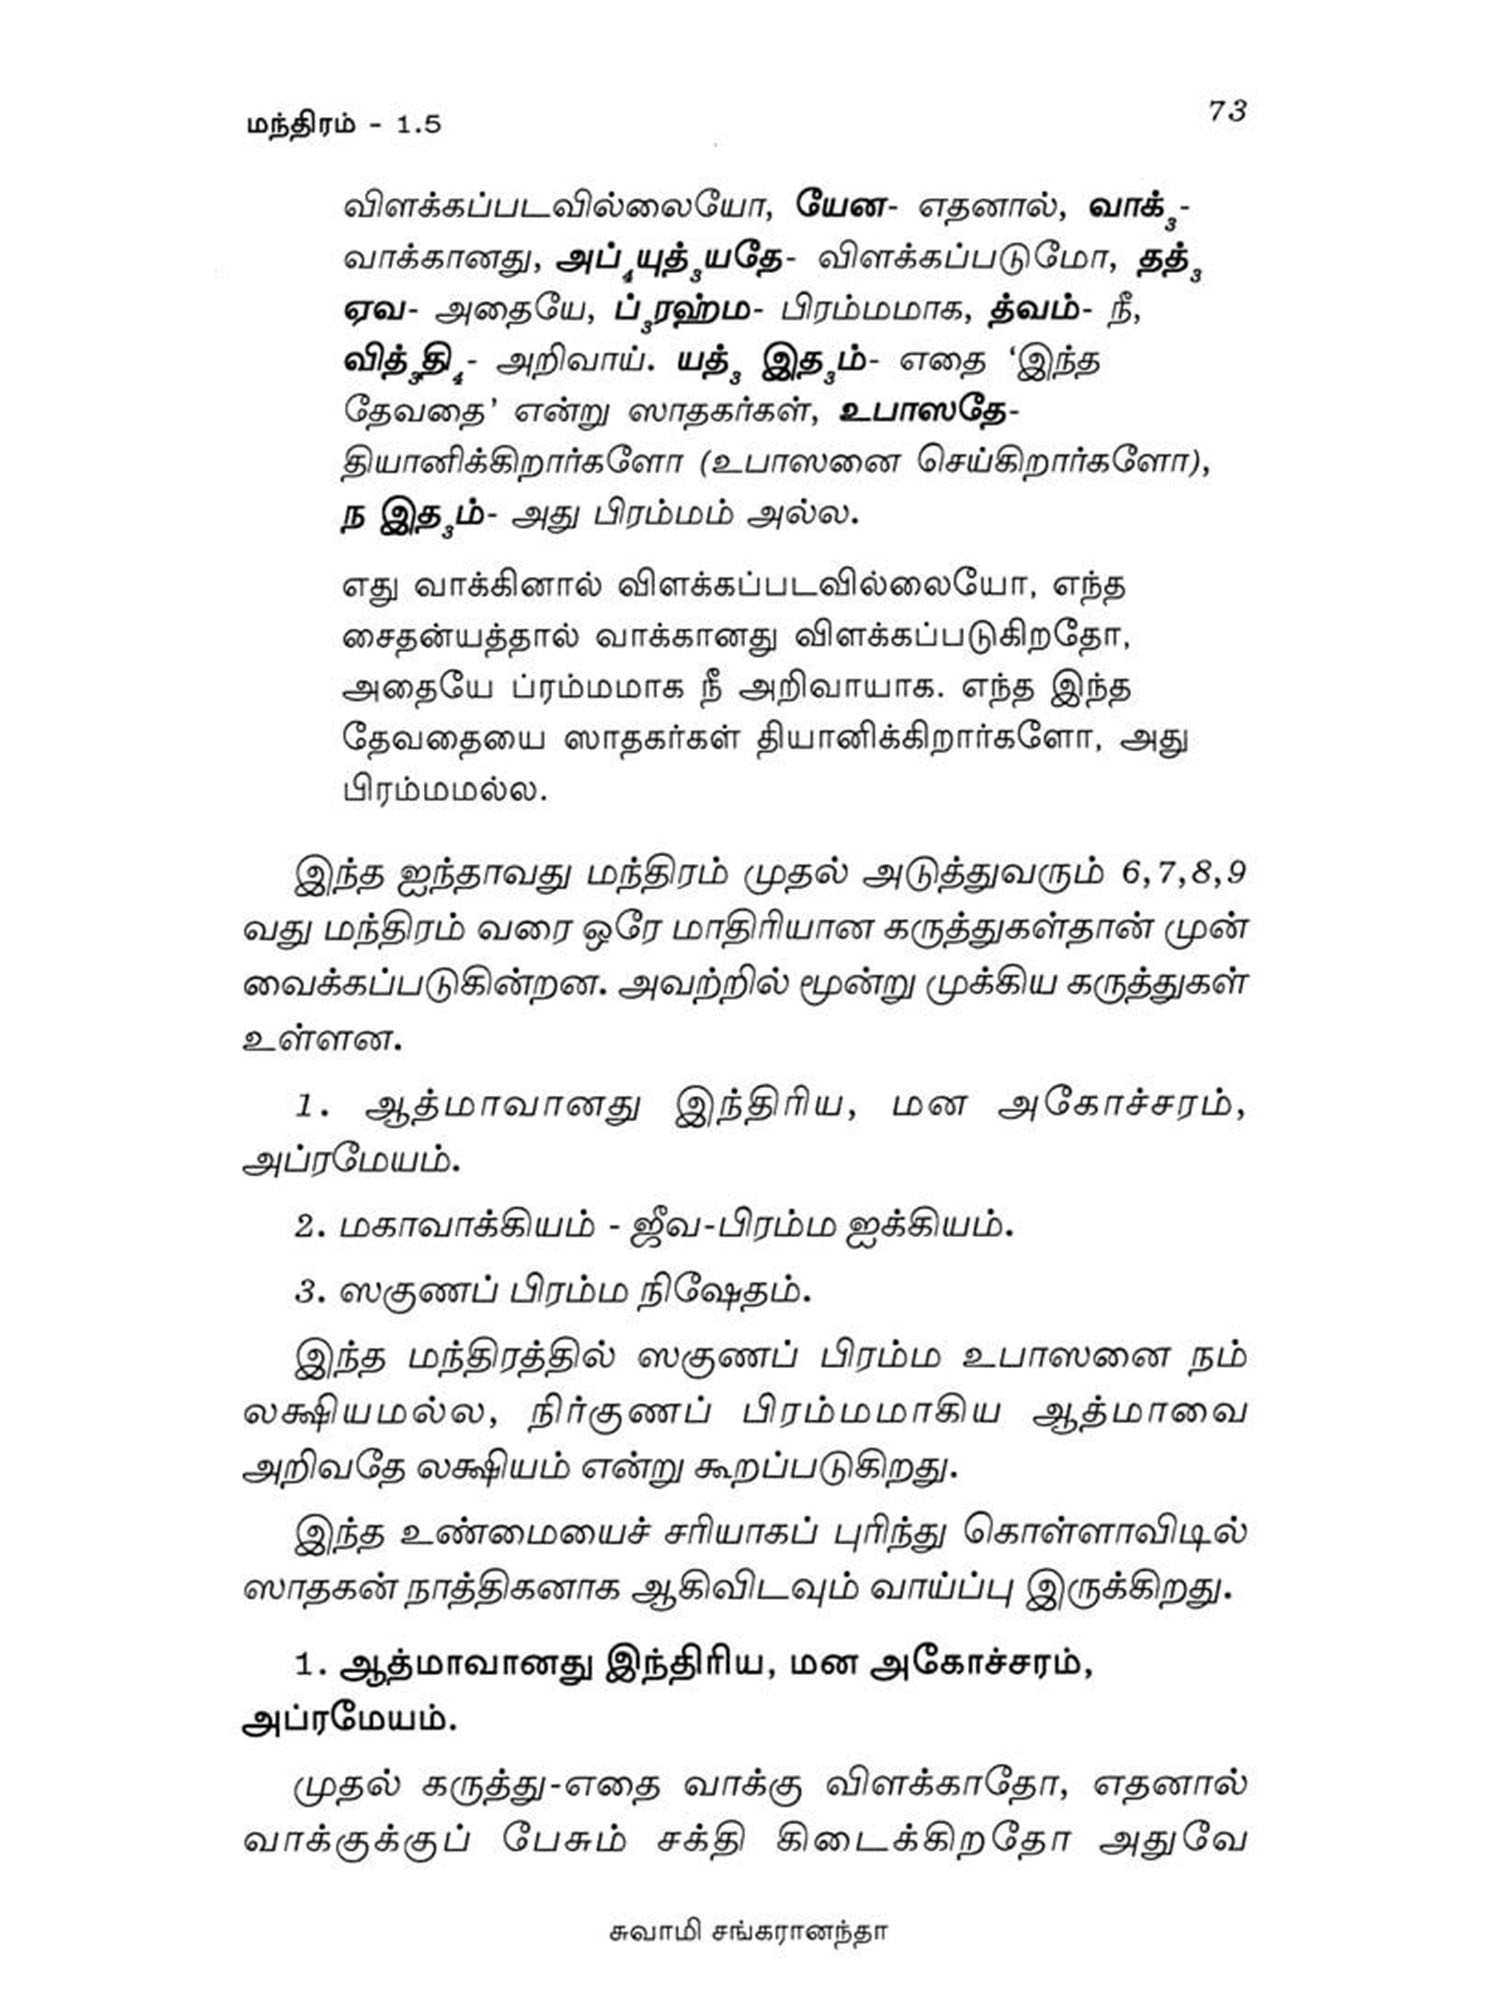 மந்திரம் - 1.5
73
விளக்கப்படவில்லையோ, யேன- எதனால், வாக்₃-
வாக்கானது, அப்₄யுத்₃யதே- விளக்கப்படுமோ, தத்₃
ஏவ- அதையே, ப்₃ரஹ்ம- பிரம்மமாக, த்வம்- நீ,
வித்₃தி₄- அறிவாய். யத்₃ இத₃ம்- எதை ‘இந்த
தேவதை’ என்று ஸாதகர்கள், உபாஸதே-
தியானிக்கிறார்களோ (உபாஸனை செய்கிறார்களோ),
ந இத₃ம்- அது பிரம்மம் அல்ல.
எது வாக்கினால் விளக்கப்படவில்லையோ, எந்த
சைதன்யத்தால் வாக்கானது விளக்கப்படுகிறதோ,
அதையே ப்ரம்மமாக நீ அறிவாயாக. எந்த இந்த
தேவதையை ஸாதகர்கள் தியானிக்கிறார்களோ, அது
பிரம்மமல்ல.
இந்த ஐந்தாவது மந்திரம் முதல் அடுத்துவரும் 6,7,8,9
வது மந்திரம் வரை ஒரே மாதிரியான கருத்துகள்தான் முன்
வைக்கப்படுகின்றன. அவற்றில் மூன்று முக்கிய கருத்துகள்
உள்ளன.
1. ஆத்மாவானது இந்திரிய, மன அகோச்சரம்,
அப்ரமேயம்.
2. மகாவாக்கியம் - ஜீவ-பிரம்ம ஐக்கியம்.
3. ஸகுணப் பிரம்ம நிஷேதம்.
இந்த மந்திரத்தில் ஸகுணப் பிரம்ம உபாஸனை நம்
லக்ஷியமல்ல, நிர்குணப் பிரம்மமாகிய ஆத்மாவை
அறிவதே லக்ஷியம் என்று கூறப்படுகிறது.
இந்த உண்மையைச் சரியாகப் புரிந்து கொள்ளாவிடில்
ஸாதகன் நாத்திகனாக ஆகிவிடவும் வாய்ப்பு இருக்கிறது.
1. ஆத்மாவானது இந்திரிய, மன அகோச்சரம்,
அப்ரமேயம்.
முதல் கருத்து-எதை வாக்கு விளக்காதோ, எதனால்
வாக்குக்குப் பேசும் சக்தி கிடைக்கிறதோ அதுவே
சுவாமி சங்கரானந்தா